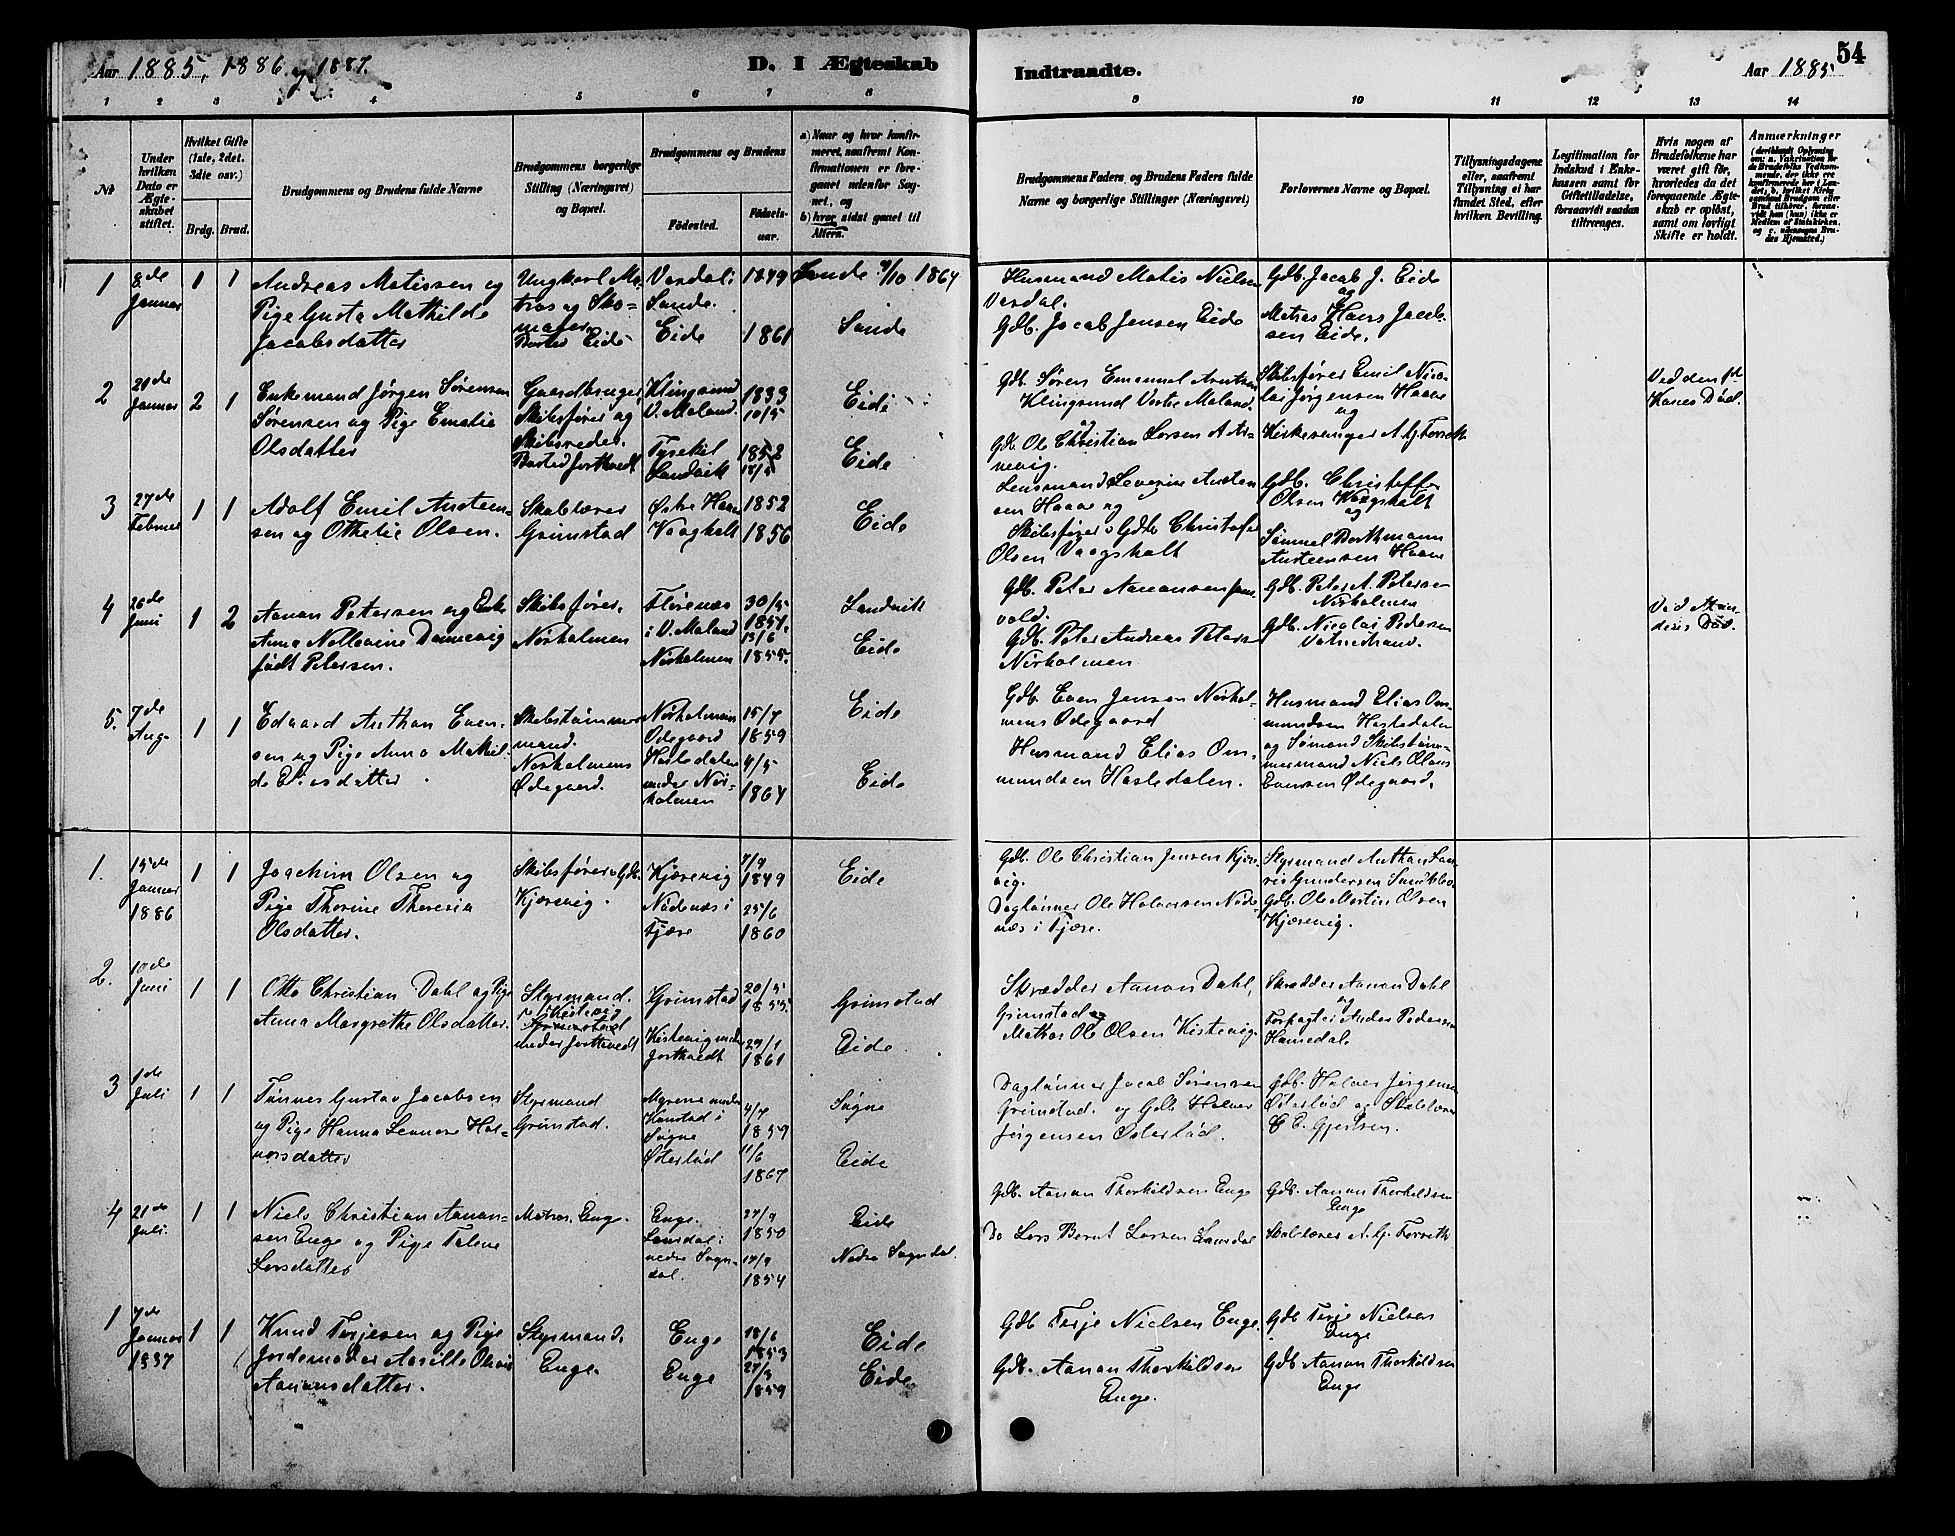 Aar 1885, 1886 og 1887.
D. I Ægteskab
Indtraadte.
Aar 1885
54
1 2 3 3 4 5 6 7 8
9 10 11 12 13 14
No
Under hvilken Dato er Ægteskabet stiftet.
Hvilket Gifte (1ste, 2det, 3die osv.)
Brdg. Brud.
Brudgommens og Brudens fulde Navne
Brudgommens borgerlige Stilling (Næringsvei) og Bopæl.
Brudgommens og Brudens
Fødested.
Fødselsaar.
a) Naar og hvor konfirmeret, saafremt Konfirmationen er foregaaet udenfor Sognet, og
b) hvor sidst gaaet til Alters.
Brudgommens Faders og Brudens Faders fulde Navne og borgerlige Stillinger (Næringsvei)
Forlovernes Navne og Bopæl.
Tillysningsdagene eller, saafremt Tillysning ei har fundet Sted, efter hvilken Bevilling.
Legitimation for Indskud i Enkekassen samt for Giftetilladelse, forsaavidt saadan tiltrænges.
Hvis nogen af Brudefolkene har været gift før, hvorledes da det foregaaende Ægteskab er opløst, samt om lovligt Skifte er holdt.
Anmærkninger
1 8de Januar 1 1
Andreas Matissen og
Pige Gusta Mathilde
Jacobsdatter
Ungkarl Matros og Skomager
Bosted Eide
Verdal i
Sande.
Eide
1849
1861
Sande 2/10 1864
Sande
Husmand Matis Nielsen
Verdal.
Gdb. Jacob Jensen Eide
Gdb. Jacob J. Eide
og
Matros Hans Jacobsen Eide.
2 21de Januar 2 1
Enkemand Jørgen Sørensen
Sørensen og Pige Emelie
Olsdatter
Gaardbruger
Skibsfører og
Skibsreder.
Bosted Jortvedt
Klingsund
V. Moland.
Landvik
1833
10/5
1852
Eide
Eide
Gdb. Søren Emanuel
Klingsund Vestre Moland.
Gdb. Ole Christian Larsen
Skibsfører Emil Nicolai Jørgensen Haave
og
Kirkesanger A. G. Forseth
Ved den 1st
Kones Død.
3 27de Februar 1 1
Adolf Emil Austensen og Othelie Olsen.
Skolelærer
Grimstad
Østre Haave
Vaagsholt
1852
1856
Eide
Lensmand Severin Austensen Haave og
Skibsfører & Gdb. Christofer
Olsen Vaagsholt
Gdb. Christoffer
Olsen Vaagsholt
og
Samuel Borthmann
Austensen Haave
4 26de Juni 1 2
Aanon Petersen og Enke
Anna født Petersen.
Skibsfører.
Norholmen
i V. Moland
Norholmen
30/5
1851.
13/6
1855.
Landvik
Eide
Gdb. Peter Aanonsen
Gdb. Peter Andreas Petersen
Norholmen
Gdb. Peter A. Petersen
Norholmen
Gdb. Nicolai Pedersen
Vatnestrand.
Ved Mandens Død.
5. 7de Aug. 1 1
Edvard Anthon Evensen og Pige Anna Mathilde Eliesdatter
Skibstømmermand.
Norholmens
Ødegaard.
Norholmens
Ødegaard
Hasledalen
under Norholmen
15/7
1859
4/5
1864
Eide
Eide
Gdb. Even Jensen Norholmens Ødegaard
Husmand Elias Ommundsen Hasledalen.
Husmand Elias Ommundsen Hasledalen
og Sømand Skibstømmermand Niels Olaus
Evensen Ødegaard.
1. 15de Januar 1886 1 1
Joachim Olsen og
Pige Thorine Theresia
Olsdatter.
Skibsfører & Gdb.
Kjærevig.
Kjærevig
Nødenæs i
Fjære
7/9
1849
25/6
1860
Eide
Gdb. Ole Christian Jensen Kjærevig.
Daglønner Ole Halvorsen Nødenæs i Fjære.
Styrmand Anthon Lauris Gundersen
Gdb. Ole Martin Olsen
Kjærevig.
2. 10de Juni 1 1
Otto Christian Dahl og Pige
Anna Margrethe Olsdatter.
Styrmand.
Kistevig
under Jortvedt
Grimstad
Kistevig under
Jortveedt
20/5
1855.
29/1
1861
Grimstad
Eide
Skrædder Aanon Dahl,
Grimstad og
Matros Ole Olsen Kistevig.
Skrædder Aanon Dahl
og
Forpagter Anders Pedersen
Homedal.
3 1de Juli 1 1
Tønnes Gustav Jacobsen
og Pige Hanna Lenore Halvorsdatter
Styrmand
Grimstad.
Myrene under
Søgne
Østerlød
4/7
1859
11/6
1867
Søgne
Eide
Daglønner Jacob Sørensen
Grimstad. og Gdb Halvor
Jørgensen Østerlød.
Gdb. Halvor Jørgensen
Østerlød og Skolelærer
C. C. Gjertsen.
4 21de Juli. 1 1
Niels Christian Aanonsen Enge og Pige Talene
Larsdatter
Matros. Enge.
Enge.
nedre Sogndal.
27/9
1850
1854
Eide
Nedre Sogndal.
Gdb. Aanon Thorkildsen Enge
Do Lars Bernt Larsen
Gdb. Aanon Thorkildsen
Enge
Skolelærer A. G. Forseth
1 7de Januar 1887 1 1
Knud Terjesen og Pige
Jordemoder Aasille Olava
Aanonsdatter.
Styrmand.
Enge.
Enge
Enge
18/6
1853
27/3
1859
Eide
Eide
Gdb Terje Nielsen Enge.
Gdb. Aanon Thorkildsen
Enge.
Gdb Terje Nielsen
Enge
Gdb Aanon Thorkildsen
Enge